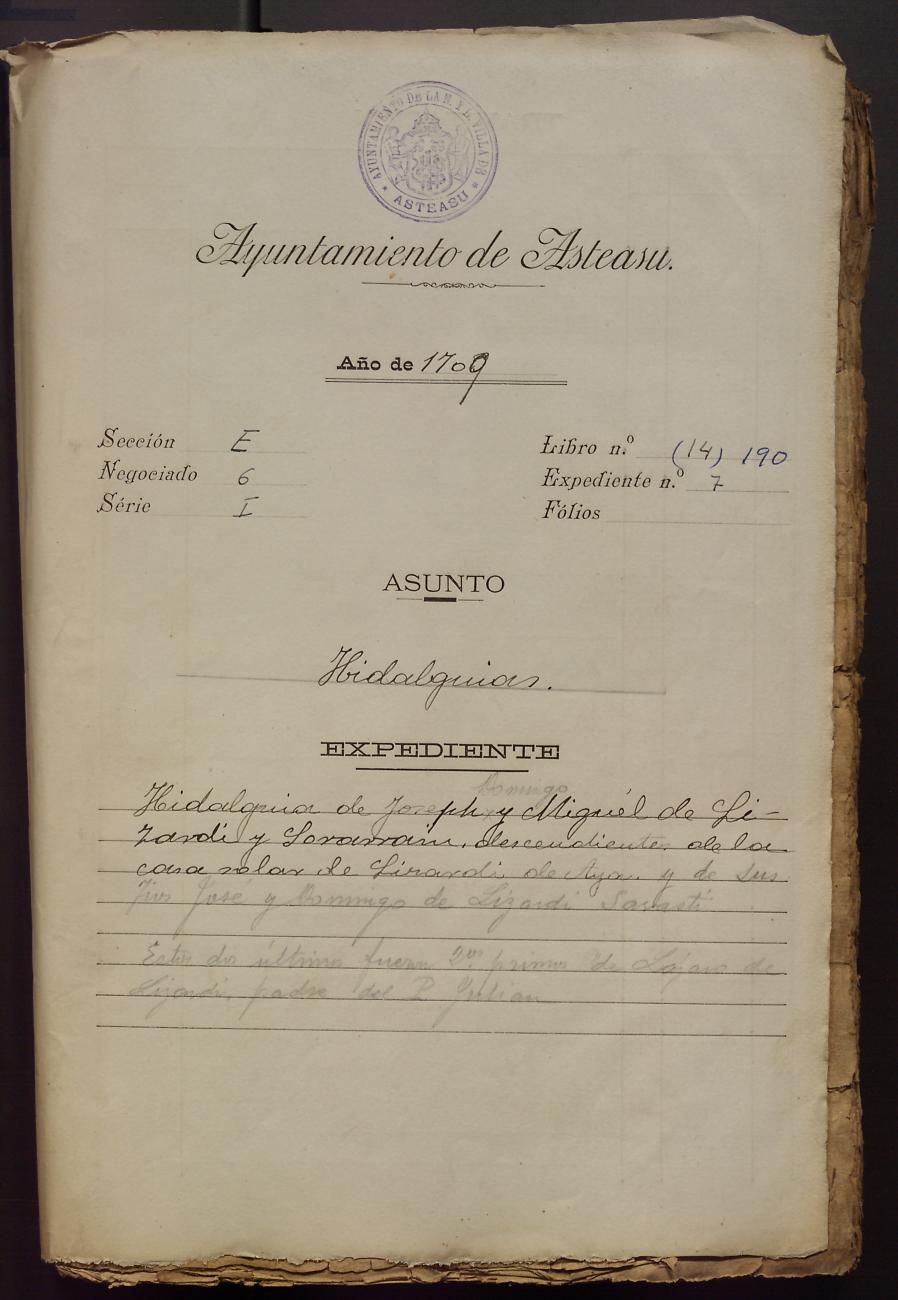 AYUNTAMIENTO DE LA N. Y L. VILLA DE
* ASTEASU *
Ayuntamiento de Asteasu.
Año de 1709
Sección E
Libro n.º (14) 190
Negociado 6
Expediente n.º 7
Série I
Fólios
ASUNTO
Hidalguias.
EXPEDIENTE
Domingo
Hidalguia de Joseph y Miguél de Li-
zardi y Lorarrain, descendientes de la
casa solar de Lizardi de Aya y de sus
José y Domingo de Lizardi Sarasti
Estos dos últimos fueron 2.os primos de Lázaro de
Lizardi, padre del P. Julian